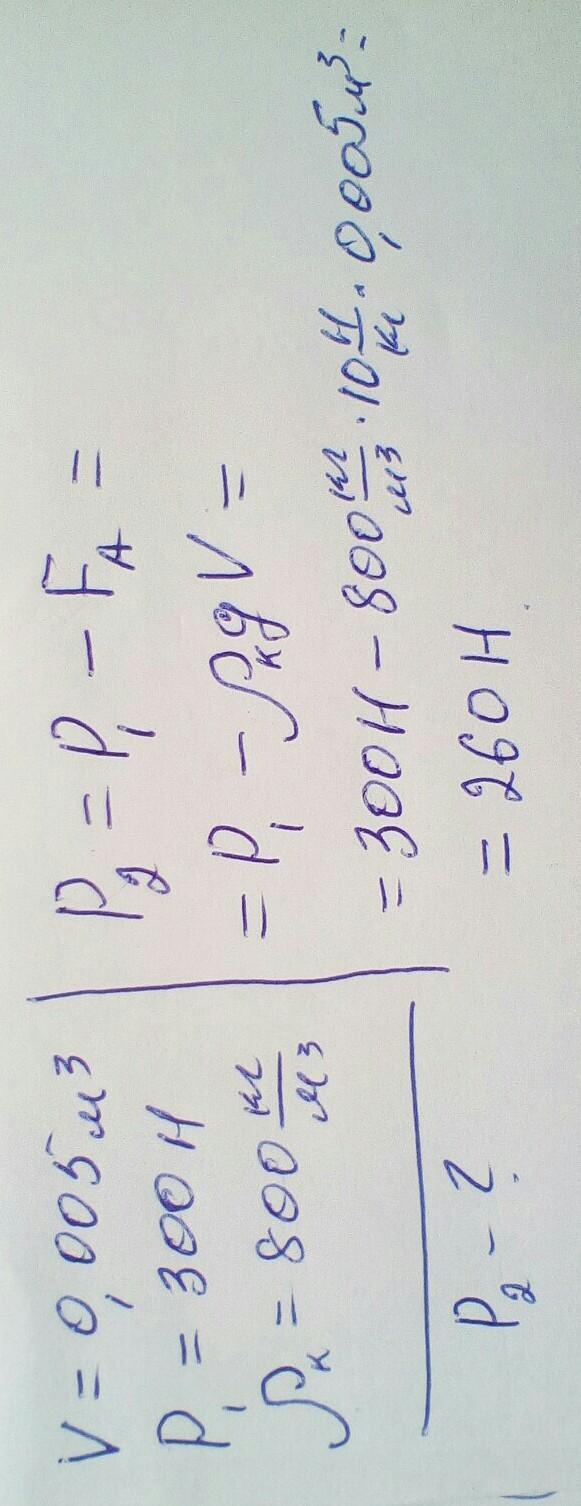 V = 0,005 м³
P₁ = 300 Н
ρк = 800 кг/м³
P₂ - ?
P₂ = P₁ - FА =
= P₁ - ρкgV =
= 300Н - 800 кг/м³ · 10 Н/кг · 0,005 м³ =
= 260 Н.